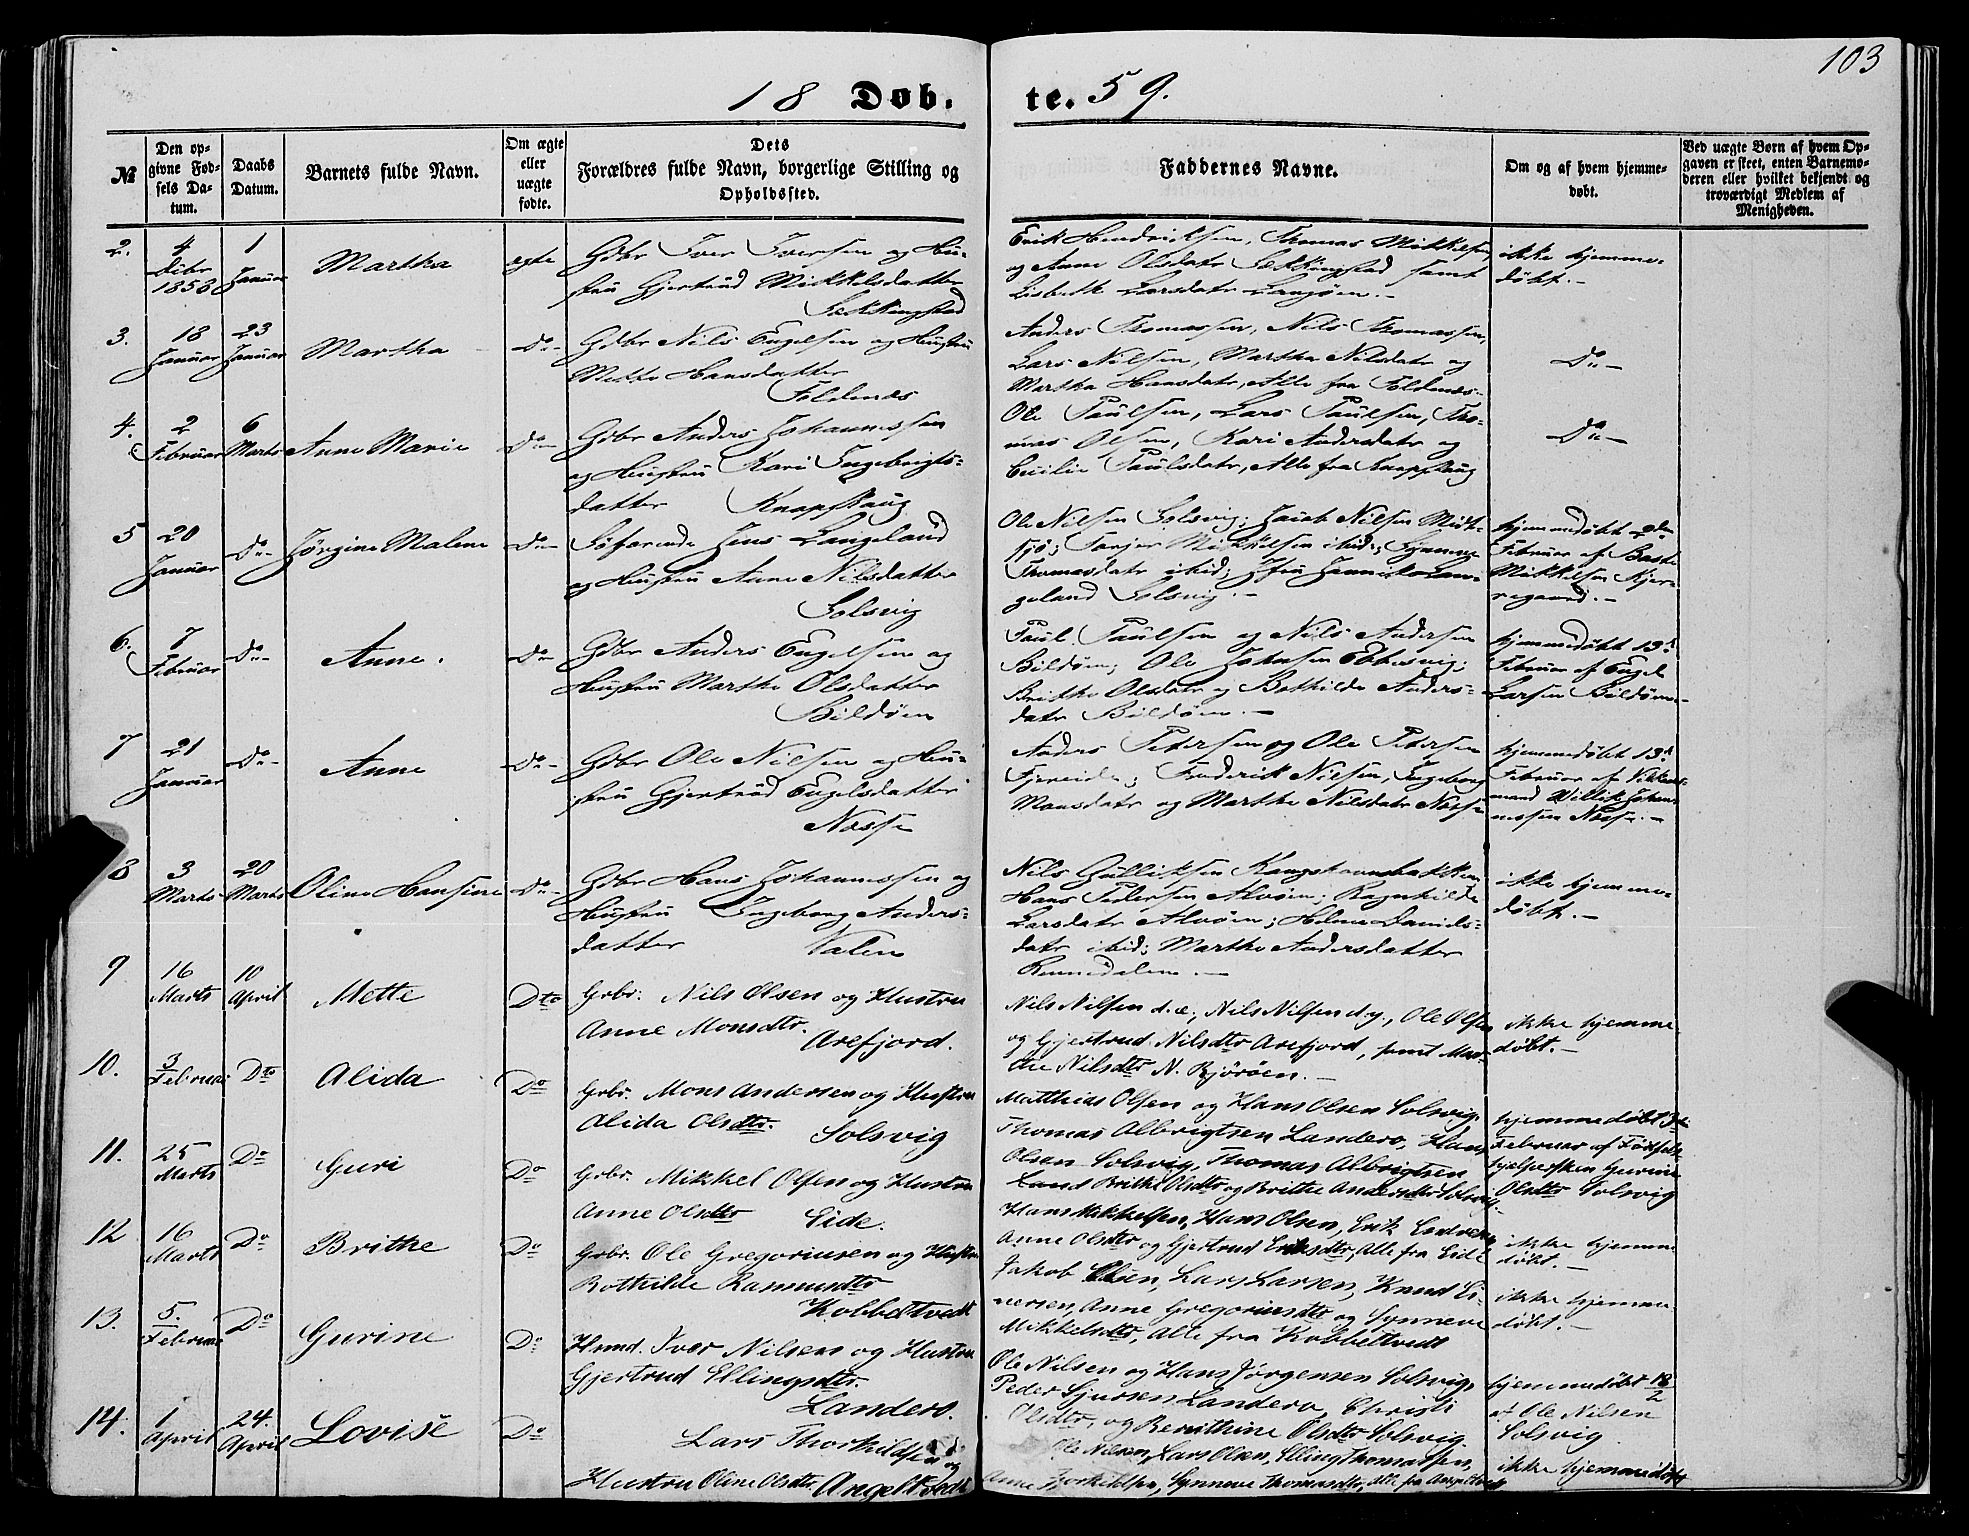 103
18 Døb. te. 59.
№
Den op-
givne Fød-
sels Da-
tum.
Daabs
Datum.
Barnets fulde Navn.
Om ægte
eller
uægte
fødte.
Dets
Forældres fulde Navn, borgerlige Stilling og
Opholdssted.
Faddernes Navne.
Om og af hvem hjemme-
døbt.
Ved uægte Børn af hvem Op-
gaven er skeet, enten Barnemo-
deren eller hvilket bekjendt og
troværdigt Medlem af
Menigheden.
2.
4
Dcbr
1858
1
Januar
Martha
ægte
Gdbr Iver Iversen og Hu-
stru Gjertrud Mikkelsdatter
Sekkingstad
Erik Hendriksen, Thomas Mikkelsen
og Anne Olsdatr Sekkingstad samt
Lisbeth Larsdatr Langøen.-
ikke hjemme-
døbt.-
3.
18
Januar
23
Januar
Martha
Do-
Gdbr Nils Engelsen og Hustru
Mette Hansdatter
Foldenæs
Anders Thomassen, Nils Thomassen,
Lars Nilsen, Martha Nilsdatr og
Martha Hansdatr, Alle fra Foldenæs.-
Do-
4.
2
Februar
6
Marts
Anne Marie
Do-
Gdbr Anders Johannessen
og Hustru Kari Ingebrigts-
datter Knapskaug
Ole Paulsen, Lars Paulsen, Tho-
mas Olsen, Kari Andersdatr og
Cecilie Paulsdatr, Alle fra Knapskaug
Do-
5
20
Januar
Do-
Jørgine Malene
Do-
Søfarende Jens Langeland
og Hustru Anne Nilsdatter
Solsvig
Ole Nilsen Solsvig; Jacob Nilsen Midt-
sjø; Torjer Mikkelsen ibid; Synneve
Thomasdatr ibid; Jfru Jannike Lan-
geland Solsvig.-
hjemmedøbt 2den
Februar af Baste
Mikkelsen Kjer-
regaard.-
6.
7
Februar
Do-
Anne.
Do-
Gdbr Anders Engelsen og
Hustru Marthe Olsdatter
Bildøen
Paul Paulsen og Nils Andersen
Bildøen; Ole Johnsen Ebbesvig;
Brithe Olsdatr og Bothilde Anders-
datr Bildøen.-
hjemmedøbt 13d
Februar af Engel
Larsen Bildøen-
7
21
Januar
Do-
Anne
Do-
Gdbr Ole Nilsen og Hu-
stru Gjertrud Engelsdatter
Næsse
Anders Petersen og Ole Petersen
Fjereide; Frederik Nilsen, Ingeborg
Monsdatr og Marthe Nilsdatr Næsse
hjemmedøbt 13d
Februar af
mand Willik Johan-
nessen Næsse.-
8
3
Marts
20
Marts
Oline Hansine
Do-
Gdbr Hans Johannessen og
Hustru Ingeborg Anders-
datter Valen
Nils Gulliksen
Hans Pedersen Alvøen; Ragnhilde
Larsdatr Alvøen; Helene Daniels-
datr ibid; Marthe Andersdatter
ikke hjemme-
døbt.-
9
16
Marts
10
April
Mette
Dto
Grbr. Nils Olsen og Hustru
Anne Monsdtr.
Arefjord.
Nils Nilsen d.æ., Nils Nilsen d.y., Ole Olsen
og Gjertrud Nilsdtr Arefjord, samt Mar-
the Nilsdtr N. Bjørøen.-
ikke hjemme-
døbt.-
10.
3
Februar
Dto
Alida
Do
Grbr. Mons Andersen og Hustru
Alida Olsdtr.
Solsvig
Matthias Olsen og Hans Olsen Solsvig,
Thomas Albrigtsen Landero, Hans
Olsen Solsvig, Thomas Albrigtsen
Land Brithe Olsdtr og Brithe Andersdtr Solsvig.
hjemmedøbt 13de
Februar af Fødsels-
hjælpersken Gurine
Olsdtr Solsvig
11.
25
Marts
Do
Guri
Do
Grbr. Mikkel Olsen og Hustru
Anne Olsdtr Eide.
Hans Mikkelsen, Hans Olsen, Erik
Anne Olsdtr og Gjertrud Eriksdtr, Alle fra Eide
ikke hjemme
døbt.-
12
16
Marts
Do
Brithe
Do
Grbr. Ole Gregoriusen og Hustru
Bothilde Rasmusdtr
Kobbeltvedt
Jakob Olsen, Lars Larsen, Knud Ei-
nersen, Anne Gregoriusdtr og Synneve
Mikkelsdtr, Alle fra Kobbeltvedt
ikke hjemme
døbt.-
13.
5.
Februar
Do
Gurine
Do
Huusmd. Iver Nilsen og Hustru
Gjertrud Ellingsdtr.
Landero.
Ole Nilsen og Hans Jørgensen Solsvig,
Peder Sjursen Landero, Christi
Olsdtr, og Berithine Olsdtr Solsvig.
hjemmedøbt 18/2
af Ole Nilsen
Solsvig
14.
1
April
24.
April
Lovise
Do
Lars Thorkildsen og
Hustru Oline Olsdtr. Angeltvedt
Ole Nilsen, Lars Olsen, Elling Thomassen,
Anne Thorkildsen, Synneve Thomasdtr, Alle fra Angeltvedt
ikke hjemmedøbt